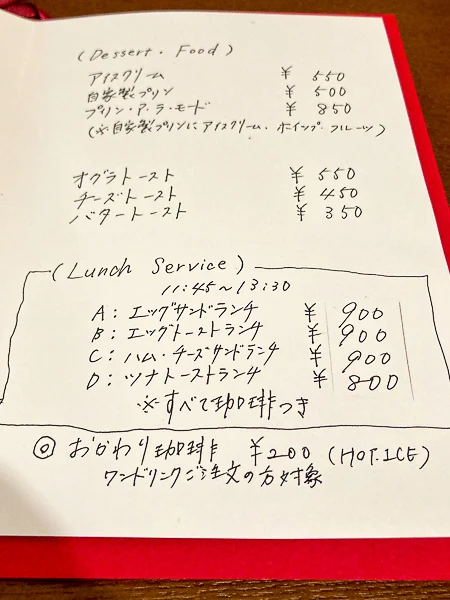 (Dessert・Food)
アイスクリーム ¥ 550
自家製プリン ¥ 500
プリン・ア・ラ・モード ¥ 850
(※自家製プリンにアイスクリーム・ホイップ・フルーツ)
オグラトースト ¥ 550
チーズトースト ¥ 450
バタートースト ¥ 350
(Lunch Service)
11:45~13:30
A:エッグサンドランチ ¥ 900
B:エッグトーストランチ ¥ 900
C:ハム・チーズサンドランチ ¥ 900
D:ツナトーストランチ ¥ 800
※すべて珈琲つき
◎おかわり珈琲 ¥200 (HOT.ICE)
ワンドリンクご注文の方対象